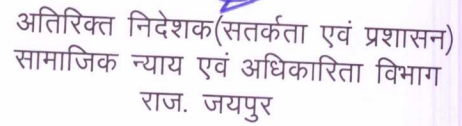 अतिरिक्त निदेशक(सतर्कता एवं प्रशासन)
सामाजिक न्याय एवं अधिकारिता विभाग
राज. जयपुर